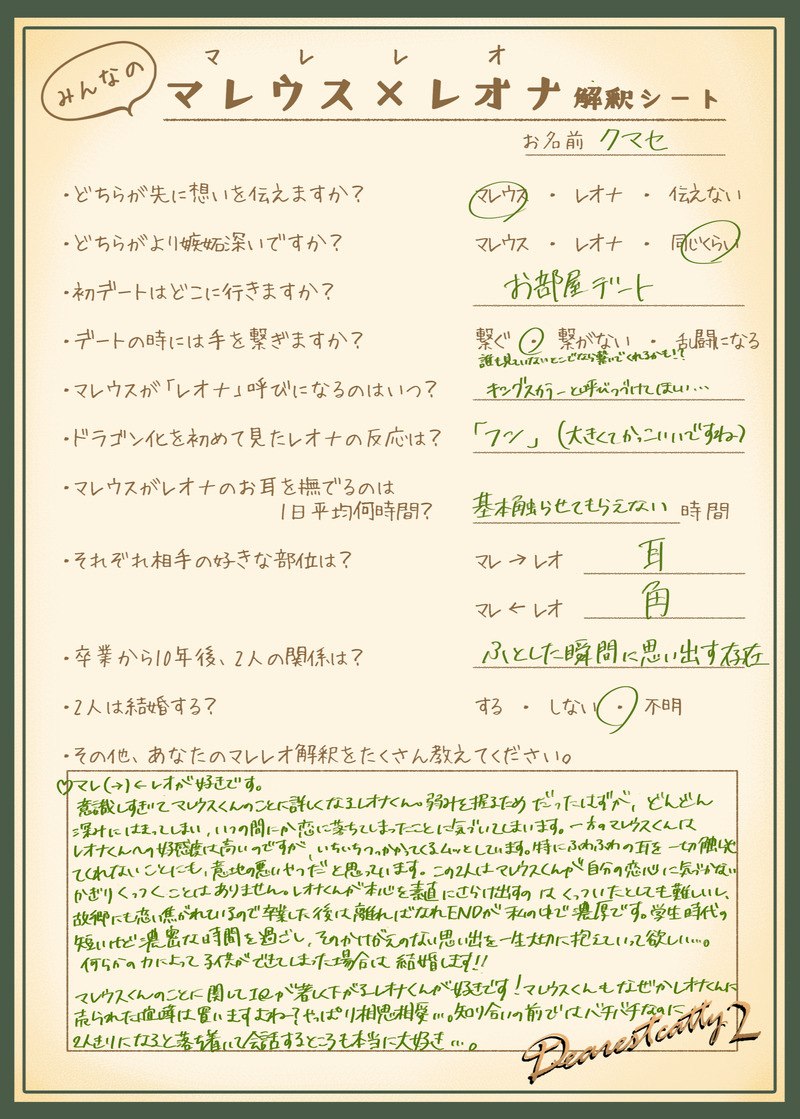 みんなの
マレレオ
マレウス×レオナ 解釈シート
お名前 クマセ
・どちらが先に想いを伝えますか? マレウス ・ レオナ ・ 伝えない
・どちらがより嫉妬深いですか? マレウス ・ レオナ ・ 同じくらい
・初デートはどこに行きますか? お部屋デート
・デートの時には手を繋ぎますか? 繋ぐ ・ 繋がない ・ 乱闘になる
誰も見ていないとこでなら繋いでくれるかも!?
・マレウスが「レオナ」呼びになるのはいつ? キングスカラーと呼びつづけてほしい…
・ドラゴン化を初めて見たレオナの反応は? 「フン」(大きくてかっこいいですね)
・マレウスがレオナのお耳を撫でるのは
1日平均何時間? 基本触らせてもらえない 時間
・それぞれ相手の好きな部位は? マレ→レオ 耳
マレ←レオ 角
・卒業から10年後、2人の関係は? ふとした瞬間に思い出す存在
・2人は結婚する? する ・ しない ・ 不明
・その他、あなたのマレレオ解釈をたくさん教えてください。
♡マレ(→)←レオが好きです。
意識しすぎてマレウスくんのことに詳しくなるレオナくん。弱みを握るためだったはずが、どんどん
深みにはまってしまい、いつの間にか恋に落ちてしまったことに気づいてしまいます。一方のマレウスくんは
レオナくんへの好感度は高いのですが、いちいちつっかかってくるムッとしています。特にふわふわの耳を一切触らせ
てくれないことにも、意地の悪いやつだと思っています。この2人はマレウスくんが自分の恋心に気づかない
かぎりくっつくことはありません。レオナくんが本心を素直にさらけ出すのは くっついたとしても難しいし、
故郷にも恋い焦がれているので卒業した後は離ればなれENDが私の中で濃厚です。学生時代の
短いけど濃密な時間を過ごし、そのかけがえのない思い出を一生大切に抱えていって欲しい…。
何らかの力によって子供ができてしまった場合は結婚します!!
マレウスくんのことに関してIQが著しく下がるレオナくんが好きです!マレウスくんもなぜかレオナくんに
売られた喧嘩は買いますよね?やっぱり相思相愛…。知り合いの前ではバチバチなのに
2人きりになると落ち着いて会話するところも本当に大好き…。
Dearestcatty 2